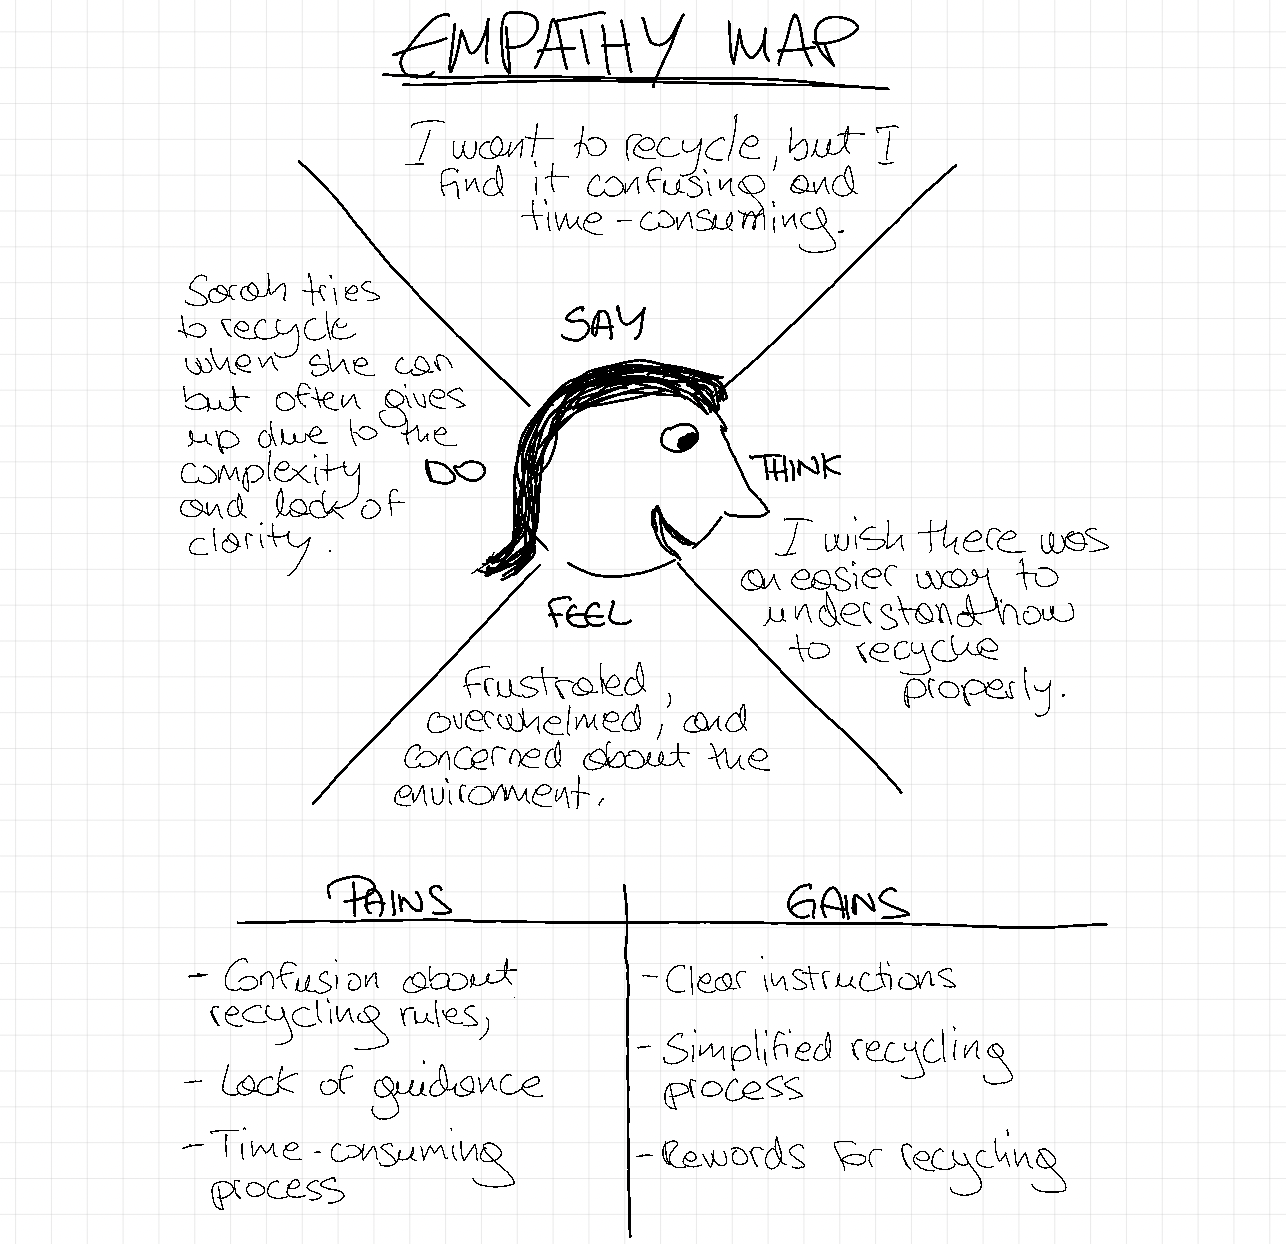 EMPATHY MAP
I want to recycle, but I
find it confusing and
time-consuming.
SAY
Sarah tries
to recycle
when she can
but often gives
up due to the
complexity
and lack of
clarity.
DO
THINK
I wish there was
an easier way to
understand how
to recycle
properly.
FEEL
frustrated,
overwhelmed, and
concerned about the
enviroment.
PAINS
- Confusion about
recycling rules,
- Lack of guidance
- Time-consuming
process
GAINS
- Clear instructions
- Simplified recycling
process
- Rewords for recycling